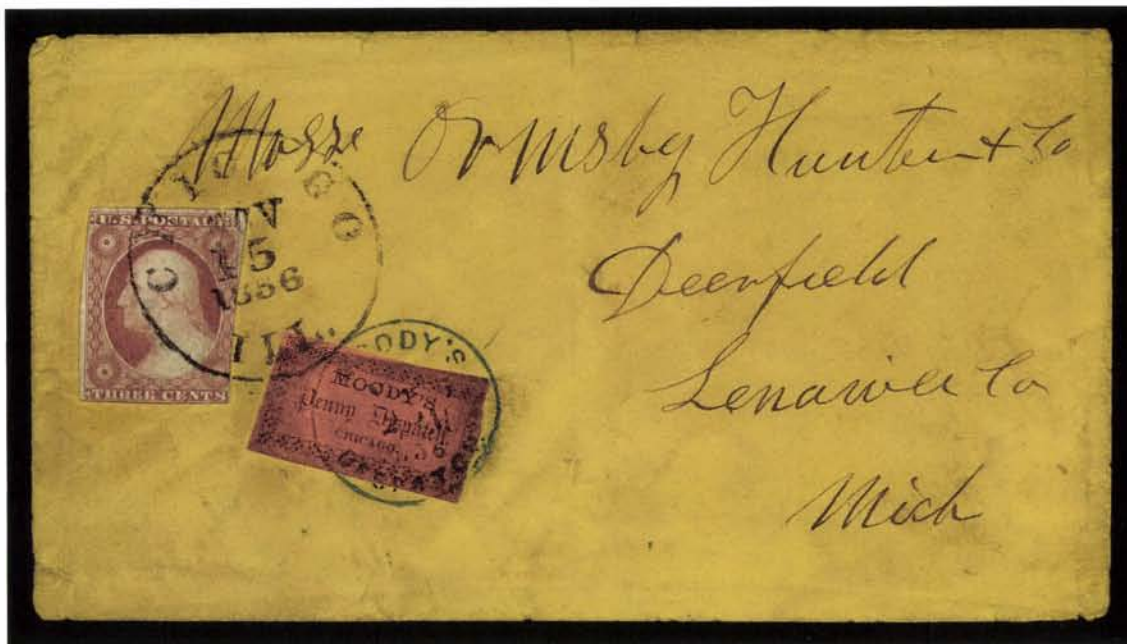 Messr Ormsby Hunter & Co
Deerfield
Lenawee Co
Mich
CHICAGO
15
1856
ILL.
U.S. POSTAGE
THREE CENTS
MOODY'S
MOODY'S
Penny Dispatch
CHICAGO